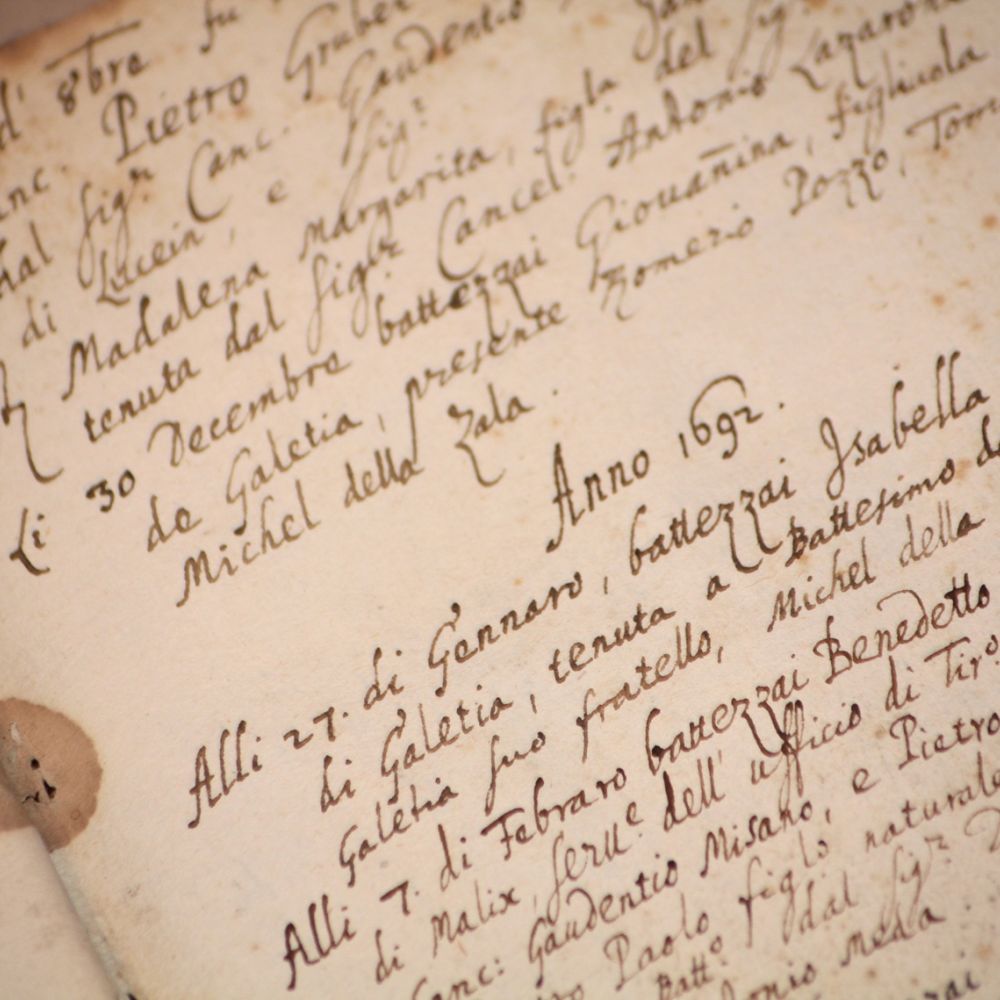 8bre fu
Pietro Gruber
dal sigr Canc. Gaudentio
di Lucein, e sigr
Madalena Margarita, figla del sigr
tenuta dal sigr Cancel. Antonio Lazarone
Li 30 Decembre battezzai Giouañina, figliuola
de Galetia, presente Romerio Pozzo, Tom
Michel della Zala.
Anno 1692.
Alli 27. di Gennaro, battezzai Isabella
di Galetia, tenuta a Battesimo da
Galetia suo fratello, Michel della
Alli 7. di Febraro battezzai Benedetto
di Malix, serue dell' ufficio di Tiro
Canc: Gaudentio Misano, e Pietro
Paolo figlo naturale
Batto dal sigr